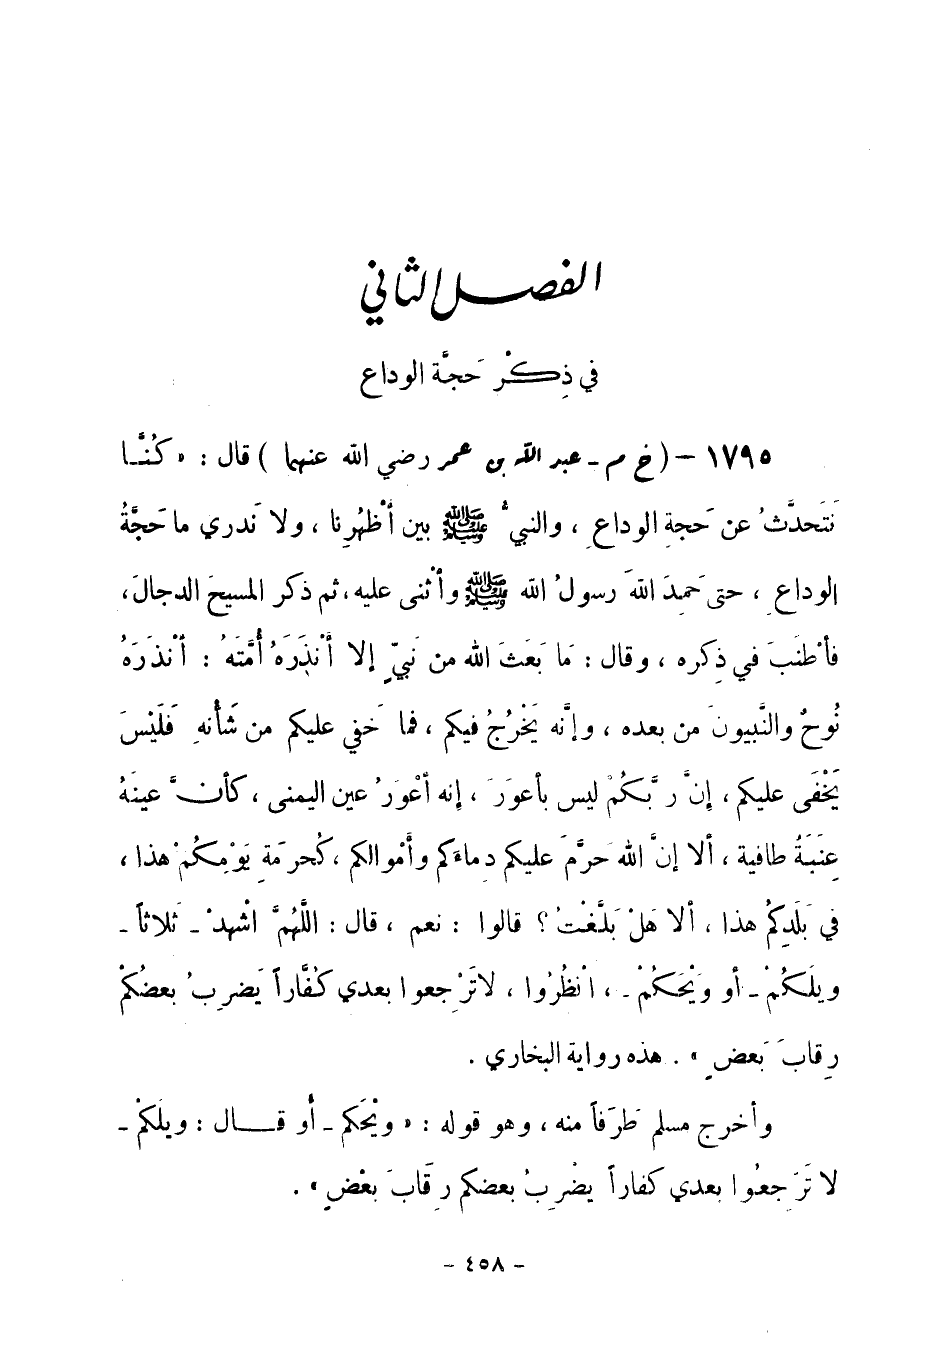 الفصل الثاني
في ذِكْر حَجَّة الوداع
١٧٩٥ – ( خ م - عبد الله بن عمر رضي الله عنهما ) قال : « كُنَّا
نَتَحدَّثُ عن حَجةِ الوداعِ ، والنبيُّ ﷺ بين أَظْهُرِنا ، ولا نَدري ما حَجَّةُ
الوداعِ ، حتى حَمِدَ اللهَ رسولُ الله ﷺ وأَثْنى عليه ، ثم ذكر المسيحَ الدجالَ ،
فأَطْنَبَ في ذِكره ، وقال : مَا بَعَثَ الله من نَبيٍّ إلا أَنْذَرَهُ أُمَّتَهُ : أَنْذَرَهُ
نُوحٌ والنَّبيونَ من بعده ، وإنَّه يَخْرُجُ فيكم ، فما خَفي عليكم من شَأْنهِ فَلَيْسَ
يَخْفَى عليكم ، إنَّ رَبَّكُمْ ليس بأعورَ ، إنه أَعْوَرُ عين اليمنى ، كأنَّ عينَهُ
عِنَبَةٌ طافية ، ألا إنَّ الله حَرَّمَ عليكم دِماءَكم وأَمْوالكم ، كَحُرمَةِ يَوْمِكُمْ هذا ،
في بَلَدِكُم هذا ، ألا هَلْ بَلَّغْتُ ؟ قالوا : نعم ، قال : اللَّهُمَّ اشْهدْ - ثلاثاً -
ويلَكُمْ - أو وَيْحَكُمْ - ، انْظُرُوا ، لا تَرْجعوا بعدي كُفَّاراً يَضربُ بعضُكمْ
رِقابَ بَعضٍ » . هذه رواية البخاري .
وأخرج مسلم طَرَفاً منه ، وهو قوله : « ويْحَكم - أو قال : ويلَكُمْ -
لا تَرَجعُوا بعدي كفاراً يضْرِبُ بعضكم رِقَابَ بعْضٍ » .
- ٤٥٨ -